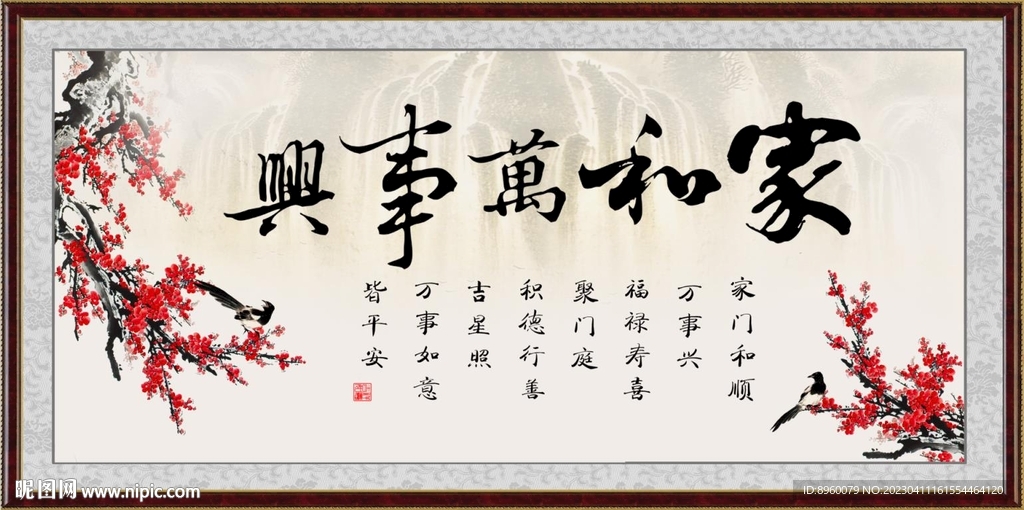 家和萬事興
家门和顺
万事兴
福禄寿喜
聚门庭
积德行善
吉星照
万事如意
皆平安
昵图网 www.nipic.com
ID:8960079 NO:20230411161554464120